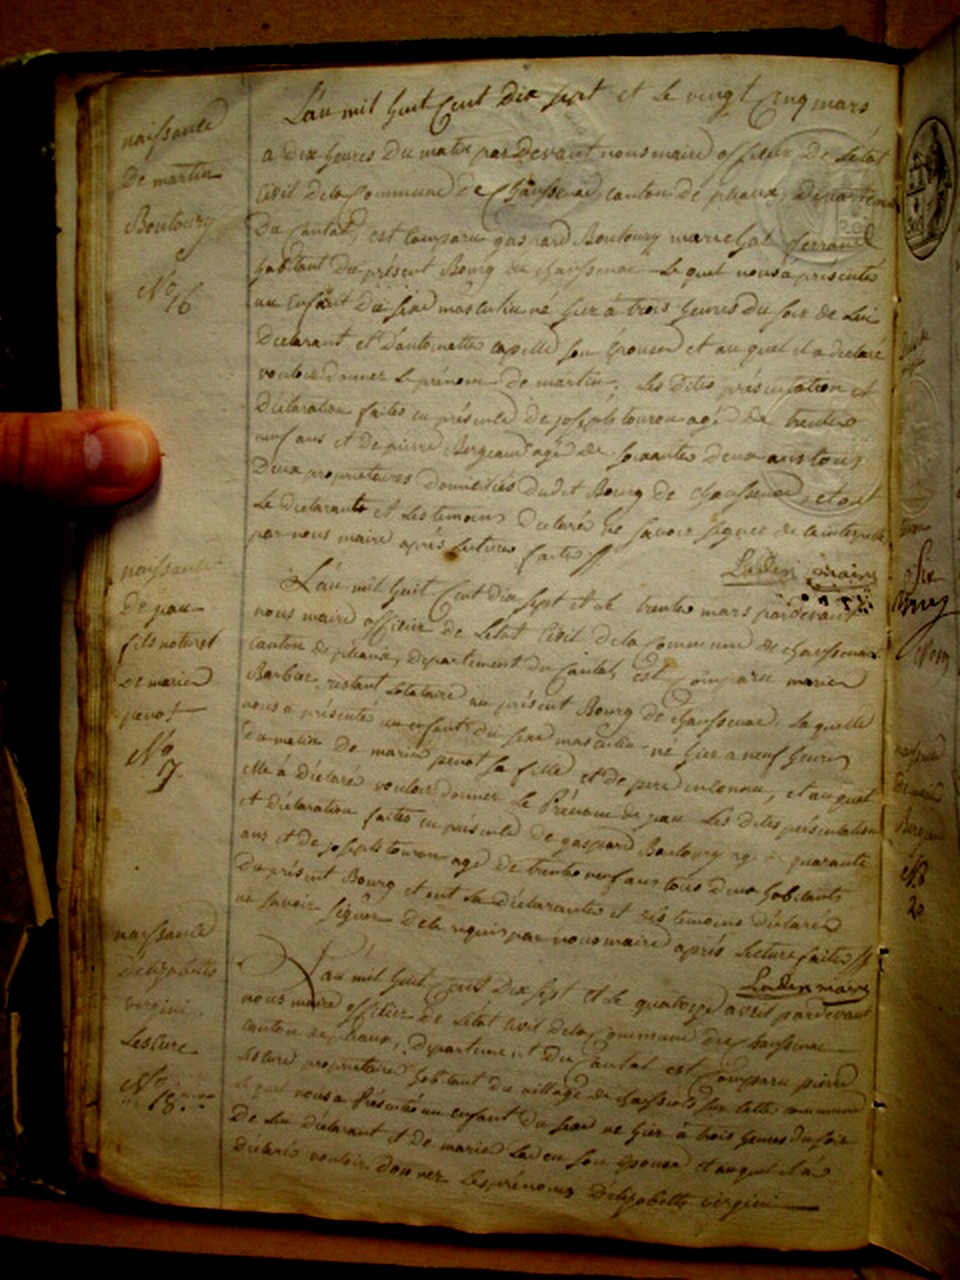 naissance
De martin
Boutoury
No 16
L'an mil huit Cent Dix sept et le vingt Cinq mars
a dix heures Du matin pardevant nous maire officier De Letat
Civil dela Commune De Chaussenac, canton De pleaux, Departement
Du Cantal, est Comparu gaspard Boutoury marechal ferrand
habitant du présent Bourg de chaussenac Le quel nous a présenté
un Enfant Du sexe masculin né hier à trois heures Du soir de Lui
Déclarant et D'antoinette capelle son Epouse et au quel il a declaré
vouloir donner Le prénom De martin; Les Dites présentation et
Déclaration faites en présence De joseph touron agé De trente
neuf ans et De pierre Bergeaud agé De soixante Deux ans tous
Deux propriétaires domiciliés Dudit Bourg De chaussenac, et ont
Le déclarant et Les temoins déclaré ne savoir signer de ce interpellé
par nous maire après Lecture faite //
Laden maire
naissance
De jean
fils naturel
De marie
penot
No 17
L'an mil huit Cent dix sept et le trente mars pardevant
nous maire officier De Letat Civil dela Commune de chaussenac
canton De pleaux, departement du Cantal, est Comparu marie
Barbier restant Locataire au présent Bourg De chaussenac. Laquelle
nous a présenté un enfant Du sexe masculin né hier a neuf heures
Du matin De marie penot sa fille et De pere inconnu, et au quel
elle à Déclaré vouloir donner Le Prénom De jean Les Dites présentation
et Déclaration faites en présence De gaspard Boutoury agé quarante
ans et De joseph touron agé De trente neuf ans tous deux habitants
Du présent Bourg et ont La déclarante et Les temoins déclaré
ne savoir signer De le requis par nous maire après Lecture faite //
Laden maire
naissance
D'elizabette
virgini
Lescure
No 18
L'an mil huit cent Dix sept et Le quatorze avril pardevant
nous maire officier De Letat Civil dela Commune De Chaussenac
canton De pleaux, Departement Du Cantal est Comparu pierre
Lescure propriétaire habitant du village de sur cette commune
Lequel nous a Présenté un enfant Du sexe né hier à trois heures Du soir
De Lui déclarant et De marie Laden son Epouse et au quel il à
Déclaré vouloir Donner Les prénoms D'elizabette virgini